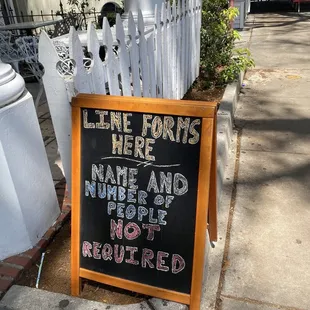 LINE FORMS
HERE
NAME AND
NUMBER OF
PEOPLE
NOT
REQUIRED